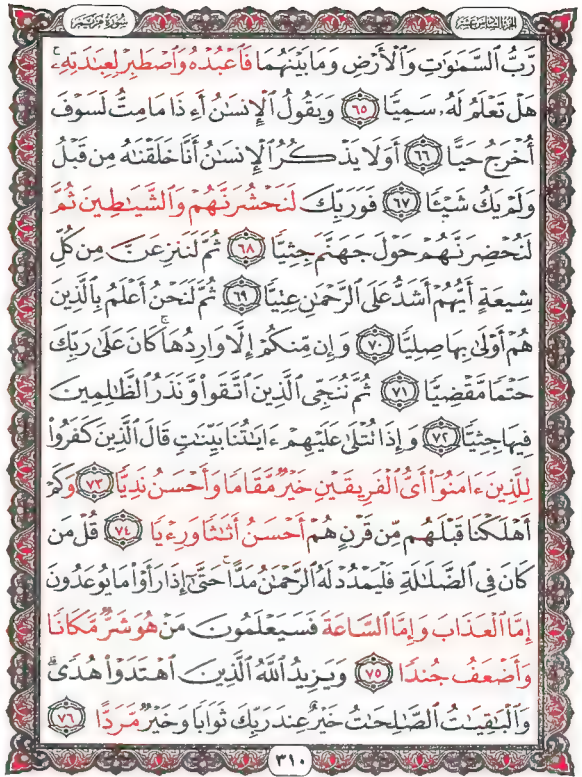 سُورَةُ مَرْيَمَ
الجُزْءُ السَّادِسَ عَشَرَ
رَّبُّ السَّمَٰوَٰتِ وَالْأَرْضِ وَمَا بَيْنَهُمَا فَاعْبُدْهُ وَاصْطَبِرْ لِعِبَٰدَتِهِۦ ۚ
هَلْ تَعْلَمُ لَهُۥ سَمِيًّا ٦٥ وَيَقُولُ الْإِنسَٰنُ أَءِذَا مَا مِتُّ لَسَوْفَ
أُخْرَجُ حَيًّا ٦٦ أَوَلَا يَذْكُرُ الْإِنسَٰنُ أَنَّا خَلَقْنَٰهُ مِن قَبْلُ
وَلَمْ يَكُ شَيْـًٔا ٦٧ فَوَرَبِّكَ لَنَحْشُرَنَّهُمْ وَالشَّيَٰطِينَ ثُمَّ
لَنُحْضِرَنَّهُمْ حَوْلَ جَهَنَّمَ جِثِيًّا ٦٨ ثُمَّ لَنَنزِعَنَّ مِن كُلِّ
شِيعَةٍ أَيُّهُمْ أَشَدُّ عَلَى الرَّحْمَٰنِ عِتِيًّا ٦٩ ثُمَّ لَنَحْنُ أَعْلَمُ بِالَّذِينَ
هُمْ أَوْلَىٰ بِهَا صِلِيًّا ٧٠ وَإِن مِّنكُمْ إِلَّا وَارِدُهَا ۚ كَانَ عَلَىٰ رَبِّكَ
حَتْمًا مَّقْضِيًّا ٧١ ثُمَّ نُنَجِّي الَّذِينَ اتَّقَوا وَّنَذَرُ الظَّٰلِمِينَ
فِيهَا جِثِيًّا ٧٢ وَإِذَا تُتْلَىٰ عَلَيْهِمْ ءَايَٰتُنَا بَيِّنَٰتٍ قَالَ الَّذِينَ كَفَرُوا
لِلَّذِينَ ءَامَنُوٓا أَيُّ الْفَرِيقَيْنِ خَيْرٌ مَّقَامًا وَأَحْسَنُ نَدِيًّا ٧٣ وَكَمْ
أَهْلَكْنَا قَبْلَهُم مِّن قَرْنٍ هُمْ أَحْسَنُ أَثَٰثًا وَرِءْيًا ٧٤ قُلْ مَن
كَانَ فِي الضَّلَٰلَةِ فَلْيَمْدُدْ لَهُ الرَّحْمَٰنُ مَدًّا ۚ حَتَّىٰٓ إِذَا رَأَوْا مَا يُوعَدُونَ
إِمَّا الْعَذَابَ وَإِمَّا السَّاعَةَ فَسَيَعْلَمُونَ مَنْ هُوَ شَرٌّ مَّكَانًا
وَأَضْعَفُ جُندًا ٧٥ وَيَزِيدُ اللَّهُ الَّذِينَ اهْتَدَوْا هُدًى ۗ
وَالْبَٰقِيَٰتُ الصَّٰلِحَٰتُ خَيْرٌ عِندَ رَبِّكَ ثَوَابًا وَخَيْرٌ مَّرَدًّا ٧٦
٣١٠